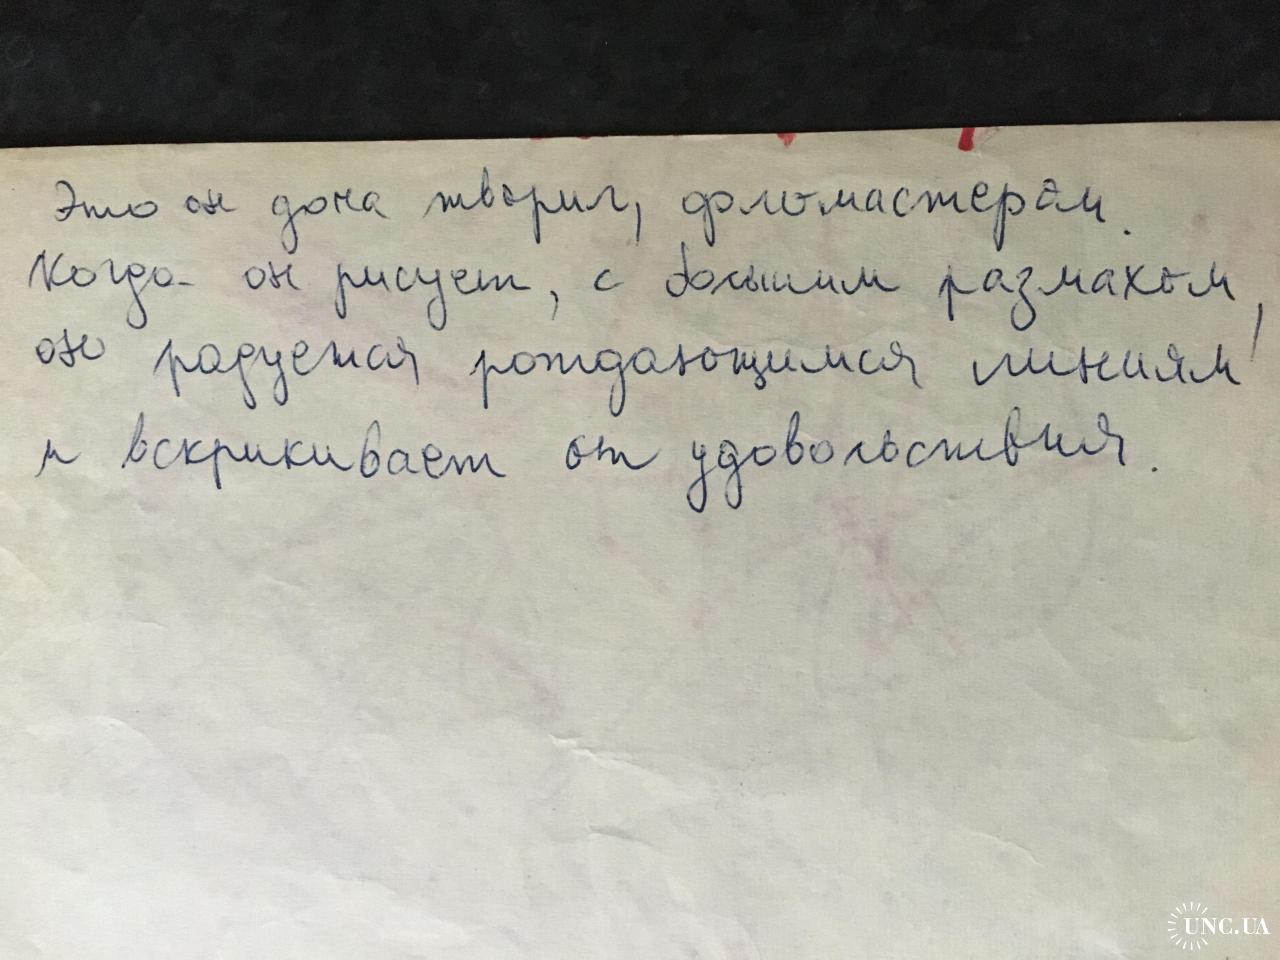 Это он дома творил, фломастером.
Когда он рисует, с большим размахом,
он радуется рождающимся линиям
и вскрикивает от удовольствия.
UNC.UA